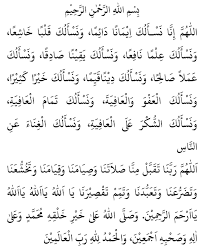 بِسْمِ اللهِ الرَّحْمٰنِ الرَّحِيْمِ
اَللّٰهُمَّ اِنَّا نَسْأَلُكَ اِيْمَانًا دَائِمًا، وَنَسْأَلُكَ قَلْبًا خَاشِعًا،
وَنَسْأَلُكَ عِلْمًا نَافِعًا، وَنَسْأَلُكَ يَقِيْنًا صَادِقًا، وَنَسْأَلُكَ
عَمَلًا صَالِحًا، وَنَسْأَلُكَ دِيْنًاقَيِّمًا، وَنَسْأَلُكَ خَيْرًا كَثِيْرًا،
وَنَسْأَلُكَ الْعَفْوَ وَالْعَافِيَةَ، وَنَسْأَلُكَ تَمَامَ الْعَافِيَةِ،
وَنَسْأَلُكَ الشُّكْرَ عَلَى الْعَافِيَةِ، وَنَسْأَلُكَ الْغِنَاءَ عَنِ
النَّاسِ
اَللّٰهُمَّ رَبَّنَا تَقَبَّلْ مِنَّا صَلَاتَنَا وَصِيَامَنَا وَقِيَامَنَا وَتَخَشُّعَنَا
وَتَضَرُّعَنَا وَتَعَبُّدَنَا وَتَمِّمْ تَقْصِيْرَنَا يَا اَللهُ يَااَللهُ يَااَللهُ
يَااَرْحَمَ الرَّاحِمِيْنَ، وَصَلَّى اللهُ عَلَى خَيْرِ خَلْقِهِ مُحَمَّدٍ وَعَلَى
اٰلِهِ وَصَحْبِهِ اَجْمَعِيْنَ، وَالْحَمْدُ لِلّٰهِ رَبِّ الْعَالَمِيْنَ